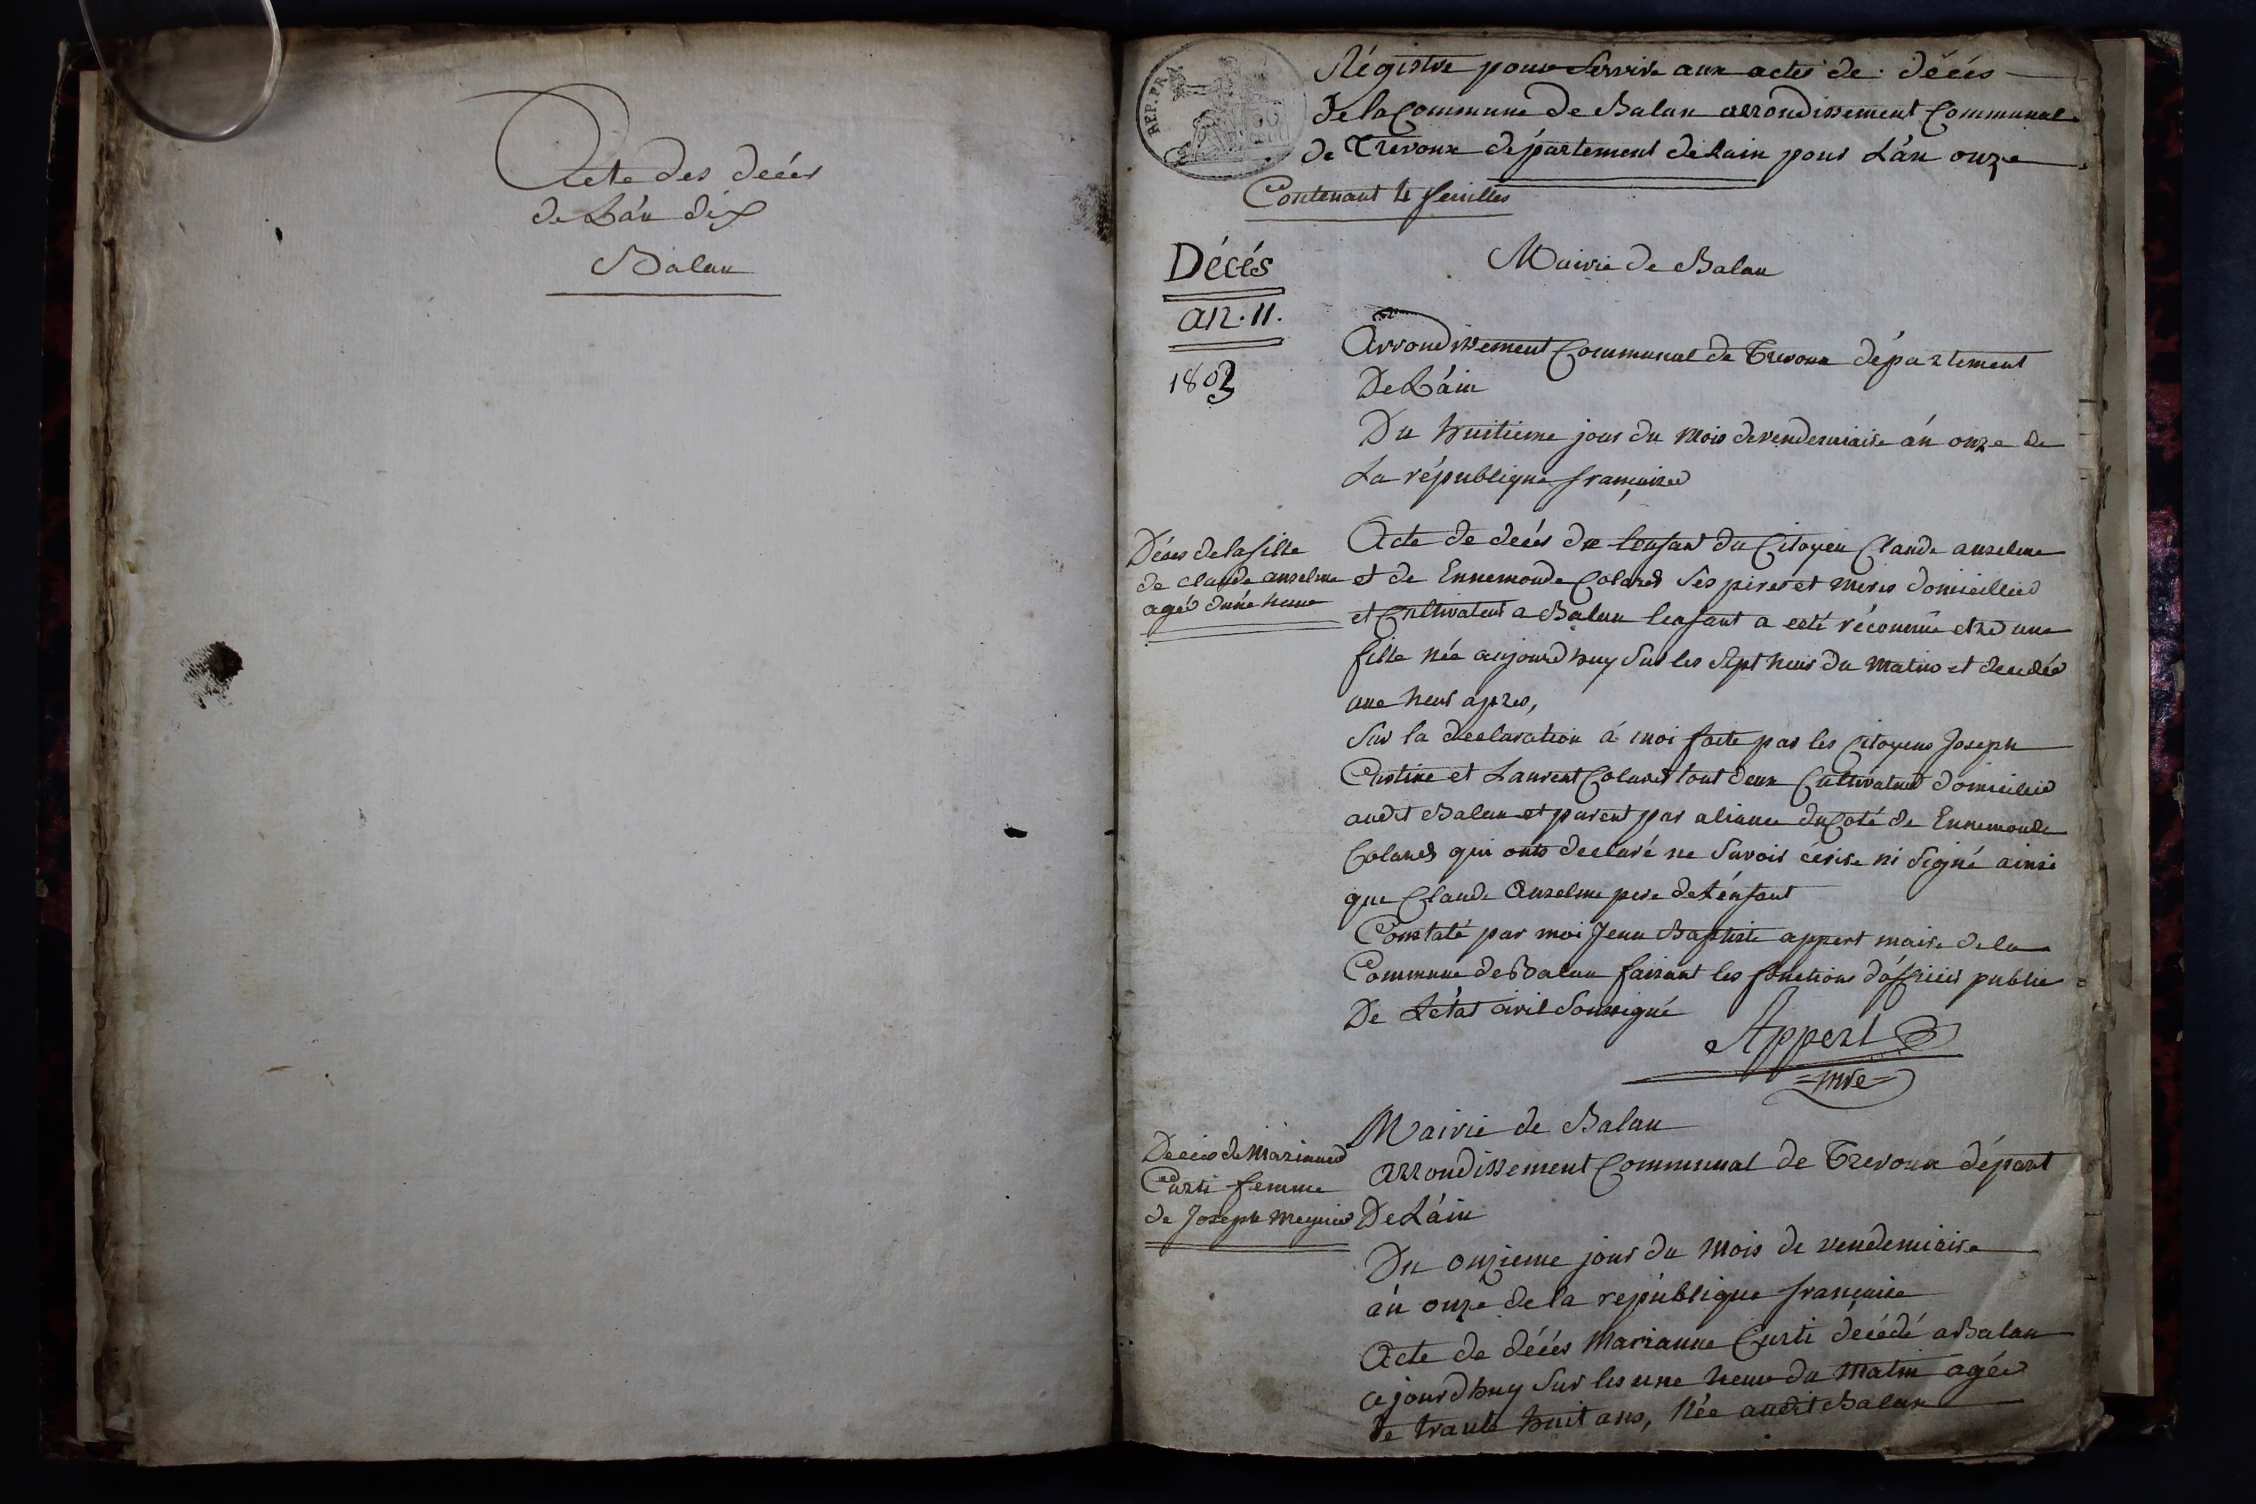 Acte des décés
de L'án dix
Balan
REP. FRA.
Régistre pour Servir aux actes de décés
de la Commune de Balan arrondissement Communal
de Trevoux département de Lain pour L'án onze
Contenant 4 feuilles
Décés
an. 11.
1803
Mairie de Balan
Arrondissement Communal de Trevoux département
De L'áin
Du huitieme jour du Mois de vendemiaire án onze de
La république française
Déces de la fille
de claude anselme
agée d'une heure
Acte de décés de lenfant du Citoyen Claude anselme
et de Ennemonde Coland ses peres et meres domiciliés
et Cultivateur a Balan lenfant a esté réconnue etre une
fille née aujourdhuy Sur les Sept heur du matin et decedée
une heur apres,
Sur la declaration á moi faite par les Citoyens Joseph
et Laurent Coland tout deux Cultivateur domicilié
audit Balan et parent par aliance du Coté de Ennemonde
Coland qui onts declaré ne Savoir écrire ni Signé ainsi
que Claude Anselme pere de L'énfant
Constaté par moi Jean Baptiste appert maire de la
Commune de Balan faisant les fonctions d'officier public
De L'état civil Soussigné
Appert
=mre=
Decès de Marianne
Curti femme
de Joseph Meynier
Mairie de Balan
arrondissement Communal de Trevoux départ
De L'áin
Du onzieme jour du Mois de vendemiaire
án onze de la république française
Acte de décés Marianne Curti décédé a Balan
cejourdhuy Sur les une heure du Matin agée
de trante huit ans, Née audit Balan